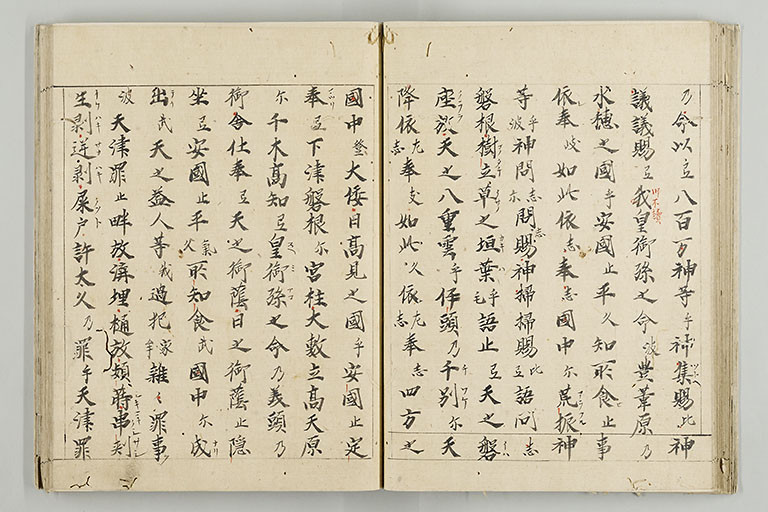 乃命以立八百万神等乎神集賜比神
議議賜弖我皇御孫之命波豊葦原乃
水穂之國乎安國止平久知所食止事
依奉岐如此依志奉志國中尓荒振神
等乎波神問志尓問志賜神掃掃賜弖比語問志
磐根樹立草之垣葉乎毛語止弖天之磐
座放天之八重雲乎伊頭乃千別尓千別弖天
降依左志奉支如此久依左志奉志四方之
國中登大倭日高見之國乎安國止定
奉弖下津磐根尓宮柱太敷立高天原
尓千木高知弖皇御孫之命乃美頭乃
御舎仕奉弖天之御蔭日之御蔭止隠
坐弖安國止平久氣所知食武國中尓成
出武天之益人等我過犯家牟雑々罪事
波天津罪止畔放溝埋樋放頻蒔串刺
生剥逆剥屎戸許太久乃罪乎天津罪